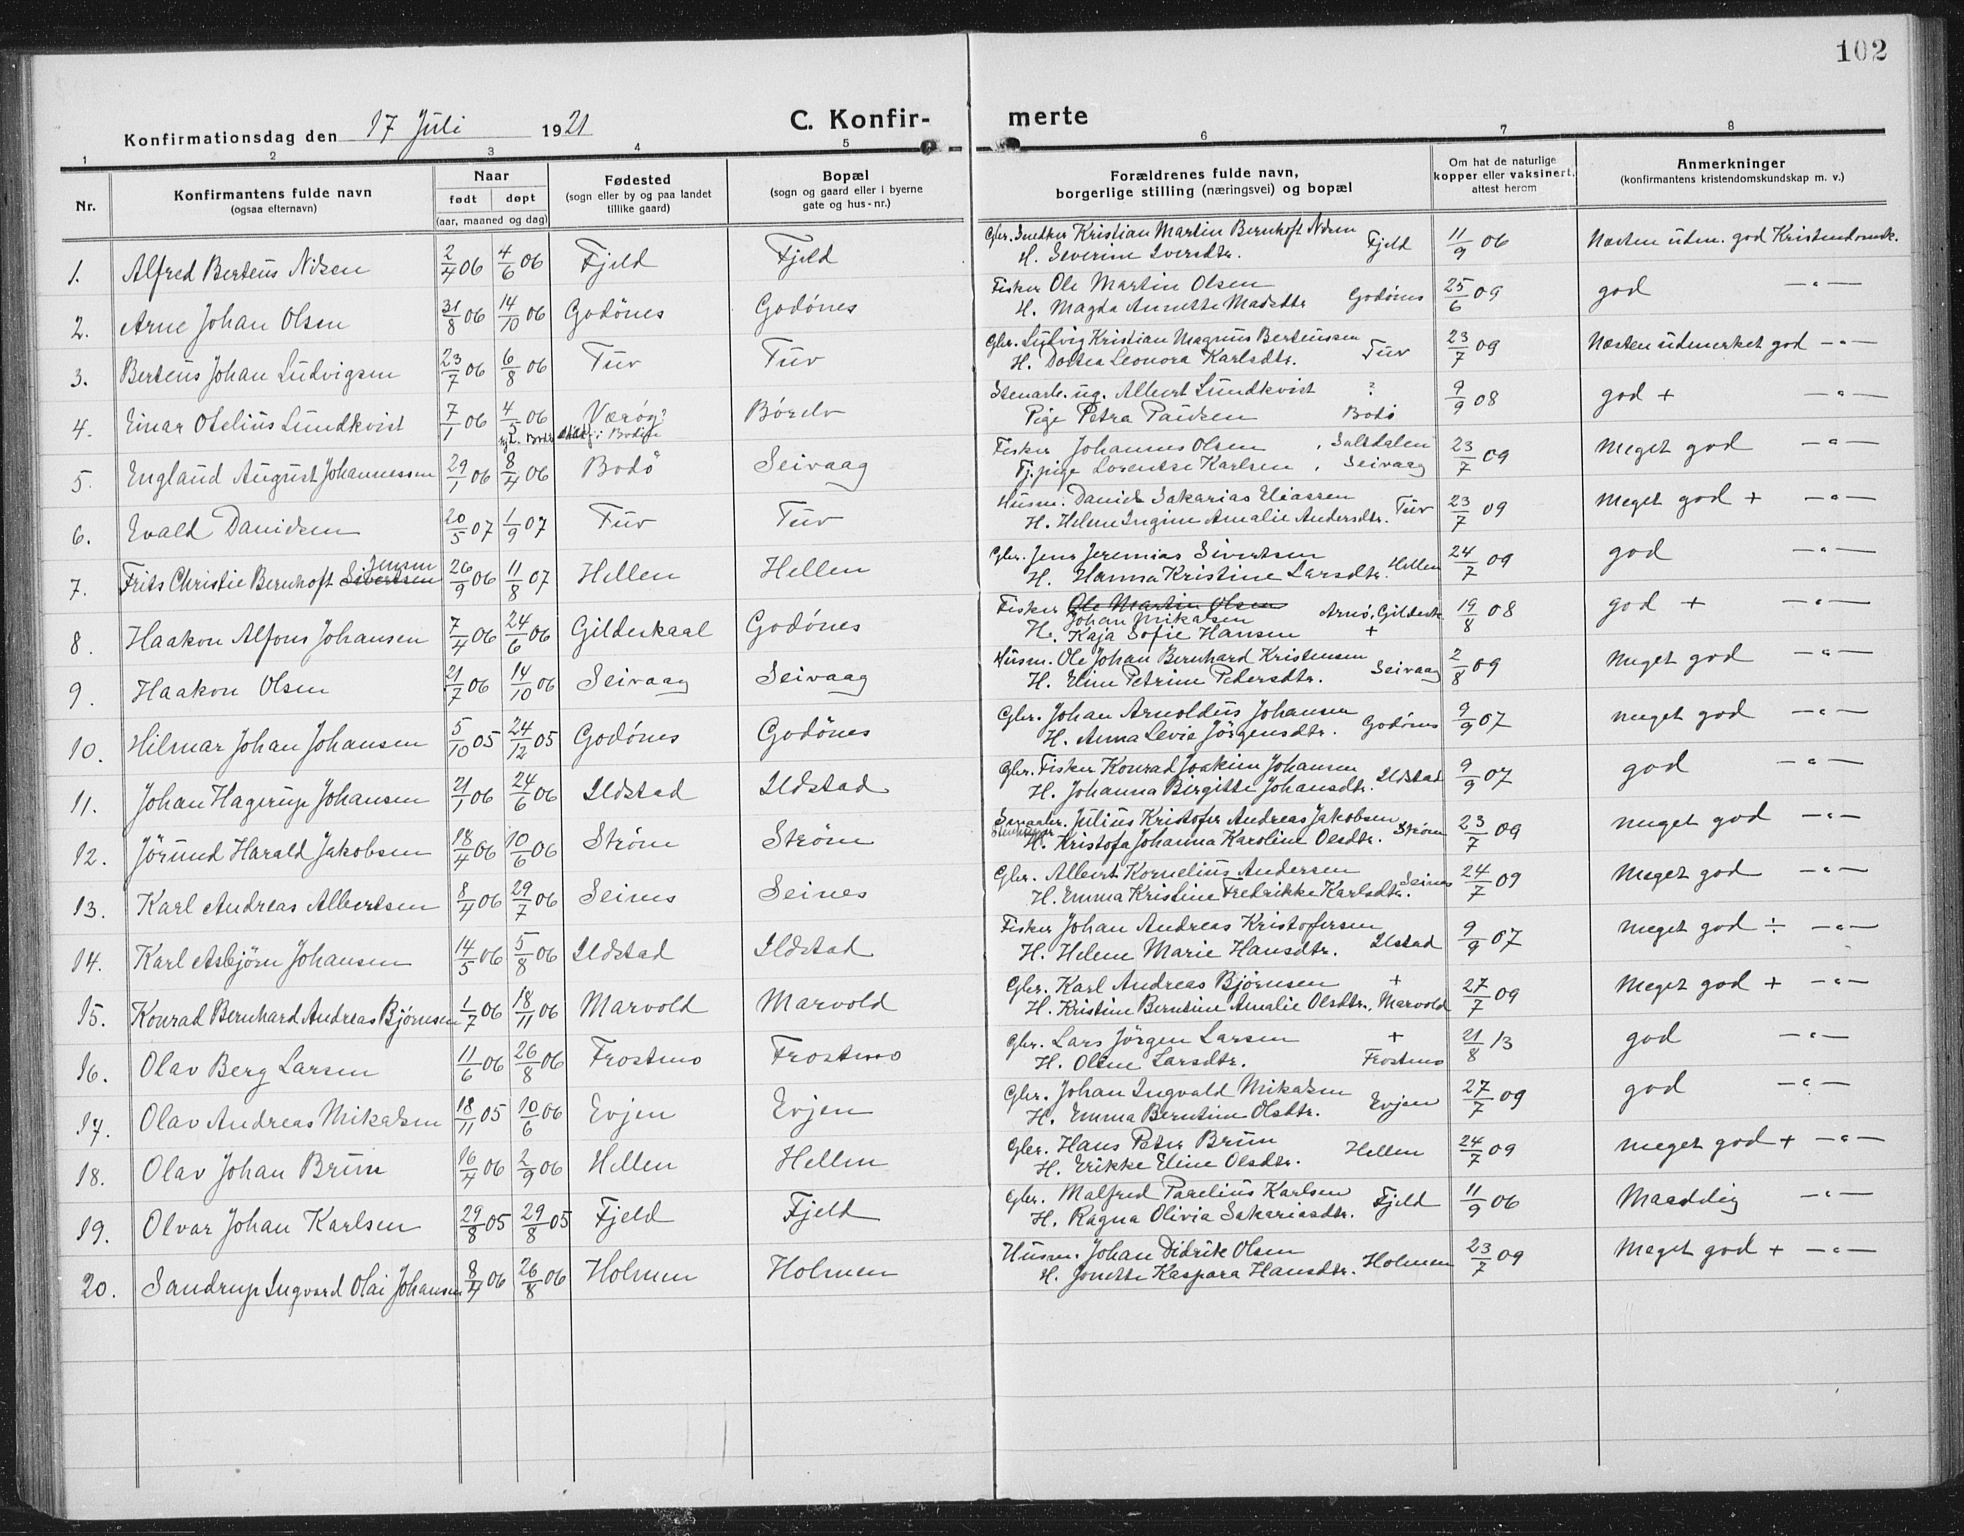 102
Konfirmationsdag den 17 Juli 1921
C. Konfir-merte
1 2 3 4 5 6 7 8
Nr.
Konfirmantens fulde navn
(ogsaa efternavn)
Naar
født døpt
(aar, maaned og dag)
Fødested
(sogn eller by og paa landet
tillike gaard)
Bopæl
(sogn og gaard eller i byerne
gate og hus-nr.)
Forældrenes fulde navn,
borgerlige stilling (næringsvei) og bopæl
Om hat de naturlige
kopper eller vaksinert,
attest herom
Anmerkninger
(konfirmantens kristendomskundskap m. v.)
1. Alfred Berteus Nilsen 2/4 06 4/6 06 Fjeld Fjeld Gbr. Snedker Kristian Martin Bernhoft Nilsen Fjeld 11/9 06 Næsten udm. god Kristendomsk.
H. Severine Iversdtr.
2. Arne Johan Olsen 31/8 06 14/10 06 Godönes Godönes Fisker Ole Martin Olsen Godönes 25/6 09 god —"—
H. Magda Annette Madsdtr
3. Berteus Johan Ludvigsen 23/7 06 6/8 06 Tuv Tuv Gbr. Ludvig Kristian Magnus Berteussen Tuv 23/7 09 Næsten udmerket god —"—
H. Dortea Leonora Karlsdtr.
4. Einar Otelius Lundkvist 7/1 06 4/3 06 Værøy? Börelv Stenarb. ug. Albert Lundkvist ? 9/9 08 god + —"—
Pige Petra Paulsen Bodö
5. Englaud August Johannessen 29/1 06 8/4 06 Bodö Seivaag Fisker Johannes Olsen, Saltdalen 23/7 09 Meget god —"—
Tj.pige Lorentse Karlsen, Seivaag
6. Evald Danielsen 20/5 07 1/9 07 Tuv Tuv Husm. Daniel Sakarias Eliassen Tuv 23/7 09 Meget god + —"—
H. Helene Ingine Amalie Andersdtr.
7. Frits Christie Bernhoft Sivertsen Jensen 26/9 06 11/8 07 Hellen Hellen Gbr. Jens Jeremias Sivertsen Hellen 24/7 09 god —"—
H. Hanna Kristine Larsdtr.
8. Haakon Alfons Johansen 7/4 06 24/6 06 Gildeskaal Godönes Fisker Ole Martin Olsen Arnö, Gildesk 19/8 08 god + —"—
Johan Mikalsen
H. Kaja Sofie Hansen +
9. Haakon Olsen 21/7 06 14/10 06 Seivaag Seivaag Husm. Ole Johan Bernhard Kristensen Seivaag 2/8 09 Meget god —"—
H. Eline Petrine Pedersdtr.
10. Hilmar Johan Johansen 5/10 05 24/12 05 Godönes Godönes Gbr. Johan Arnoldus Johansen Godönes 9/9 07 meget god —"—
H. Anna Levie Jörgensdtr.
11. Johan Hagerup Johansen 21/1 06 24/6 06 Ildstad Ildstad Gbr. Fisker Konrad Joakim Johansen Ildstad 9/9 07 god —"—
H. Johanna Birgitte Johansdtr.
12. Jörund Harald Jakobsen 18/4 06 10/6 06 Ström Ström Smaabr. Julius Kristofer Andreas Jakobsen Ström 23/7 09 meget god —"—
H. Kristofa Johanna Karoline Olsdtr.
13. Karl Andreas Albertsen 8/4 06 29/7 06 Seines Seines Gbr. Albert Kornelius Andersen Seines 24/7 09 Meget god —"—
H. Emma Kristine Fredrikke Karlsdtr.
14. Karl Asbjörn Johansen 14/5 06 5/8 06 Ildstad Ildstad Fisker Johan Andreas Kristofersen Ilstad 9/9 07 Meget god ÷ —"—
H. Helene Marie Hansdtr.
15. Konrad Bernhard Andreas Bjørnsen 1/7 06 18/11 06 Marvold Marvold Gbr. Karl Andreas Bjørnsen + 27/7 09 Meget god + —"—
H. Kristine Berntine Amalie Olsdtr., Marvold
16. Olav Berg Larsen 11/6 06 26/8 06 Frostmo Frostmo Gbr. Lars Jörgen Larsen + 21/8 13 god —"—
H. Oline Larsdtr. Frostmo
17. Olav Andreas Mikalsen 18/11 05 10/6 06 Evjen Evjen Gbr. Johan Ingvald Mikalsen Evjen 27/7 09 god —"—
H. Emma Berntine Olsdtr.
18. Olav Johan Brun 16/4 06 2/9 06 Hellen Hellen Gbr. Hans Peter Brun Hellen 24/7 09 Meget god + —"—
H. Erikke Eline Olsdtr.
19. Olvar Johan Karlsen 29/8 05 29/8 05 Fjeld Fjeld Gbr. Malfred Parelius Karlsen Fjeld 11/9 06 Maadelig —"—
H. Ragna Olivia Sakariasdtr.
20. Sandrup Ingvard Olai Johansen 8/4 06 26/8 06 Holmen Holmen Husm. Johan Didrik Olsen Holmen 23/7 09 Meget god + —"—
H. Jonette Kaspara Hansdtr.